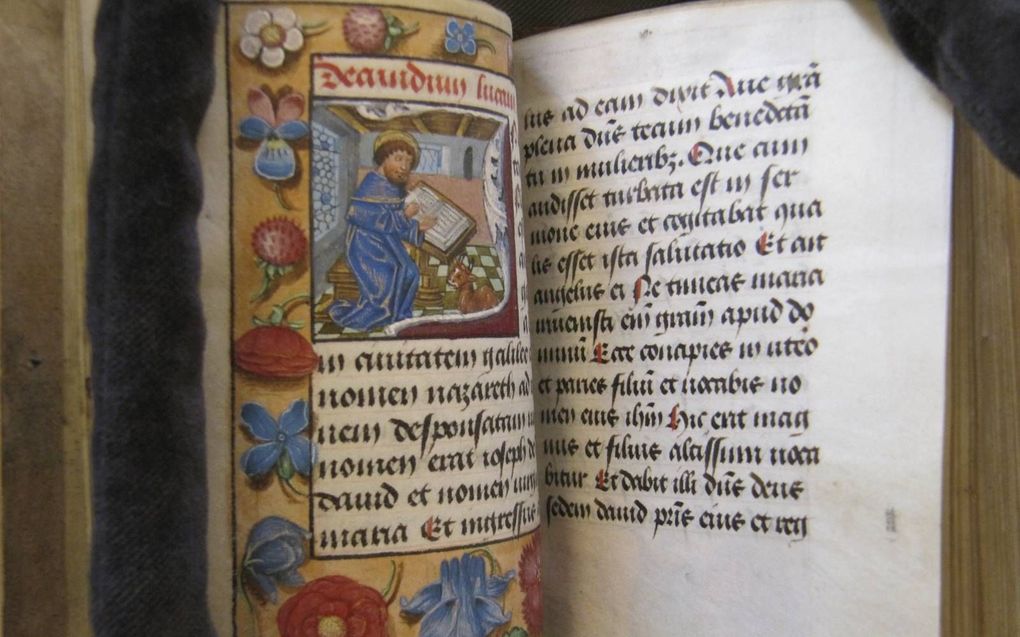 Secundum lucam
in ciuitatem galilee
nomen nazareth ad
nem desponsatam
nomen erat ioseph de
dauid et nomen uirg
maria Et ingressus
lus ad eam dixit Aue grã
plena dñs tecum benedcã
tu in mulieribz. Que cum
audisset turbata est in ser
mone eius et cogitabat qua
lis esset ista salutatio Et ait
angelus ei Ne timeas maria
inuenisti eñ grãm apud do
minũ Ecce concipies in utero
et paries filiũ et uocabis no
men eius ihm Hic erit mag
nus et filius altissimi uoca
bitur Et dabit illi dñs deus
sedem dauid pris eius et reg